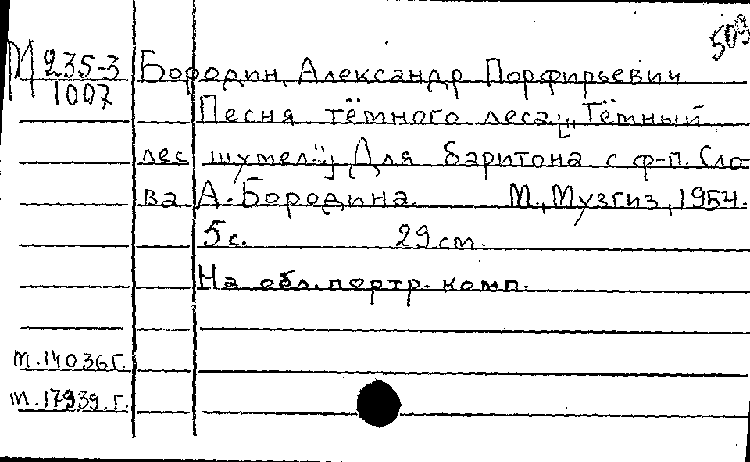 509
М 235-3 Бородин, Александр Порфирьевич
1007
Песня тёмного леса; [„Тёмный
лес шумел"]. Для баритона с ф-п. Сло-
ва А. Бородина. М., Музгиз, 1954.
5 с. 29 см.
На обл. портр. комп.
т. 14036 г.
т. 17939. г.